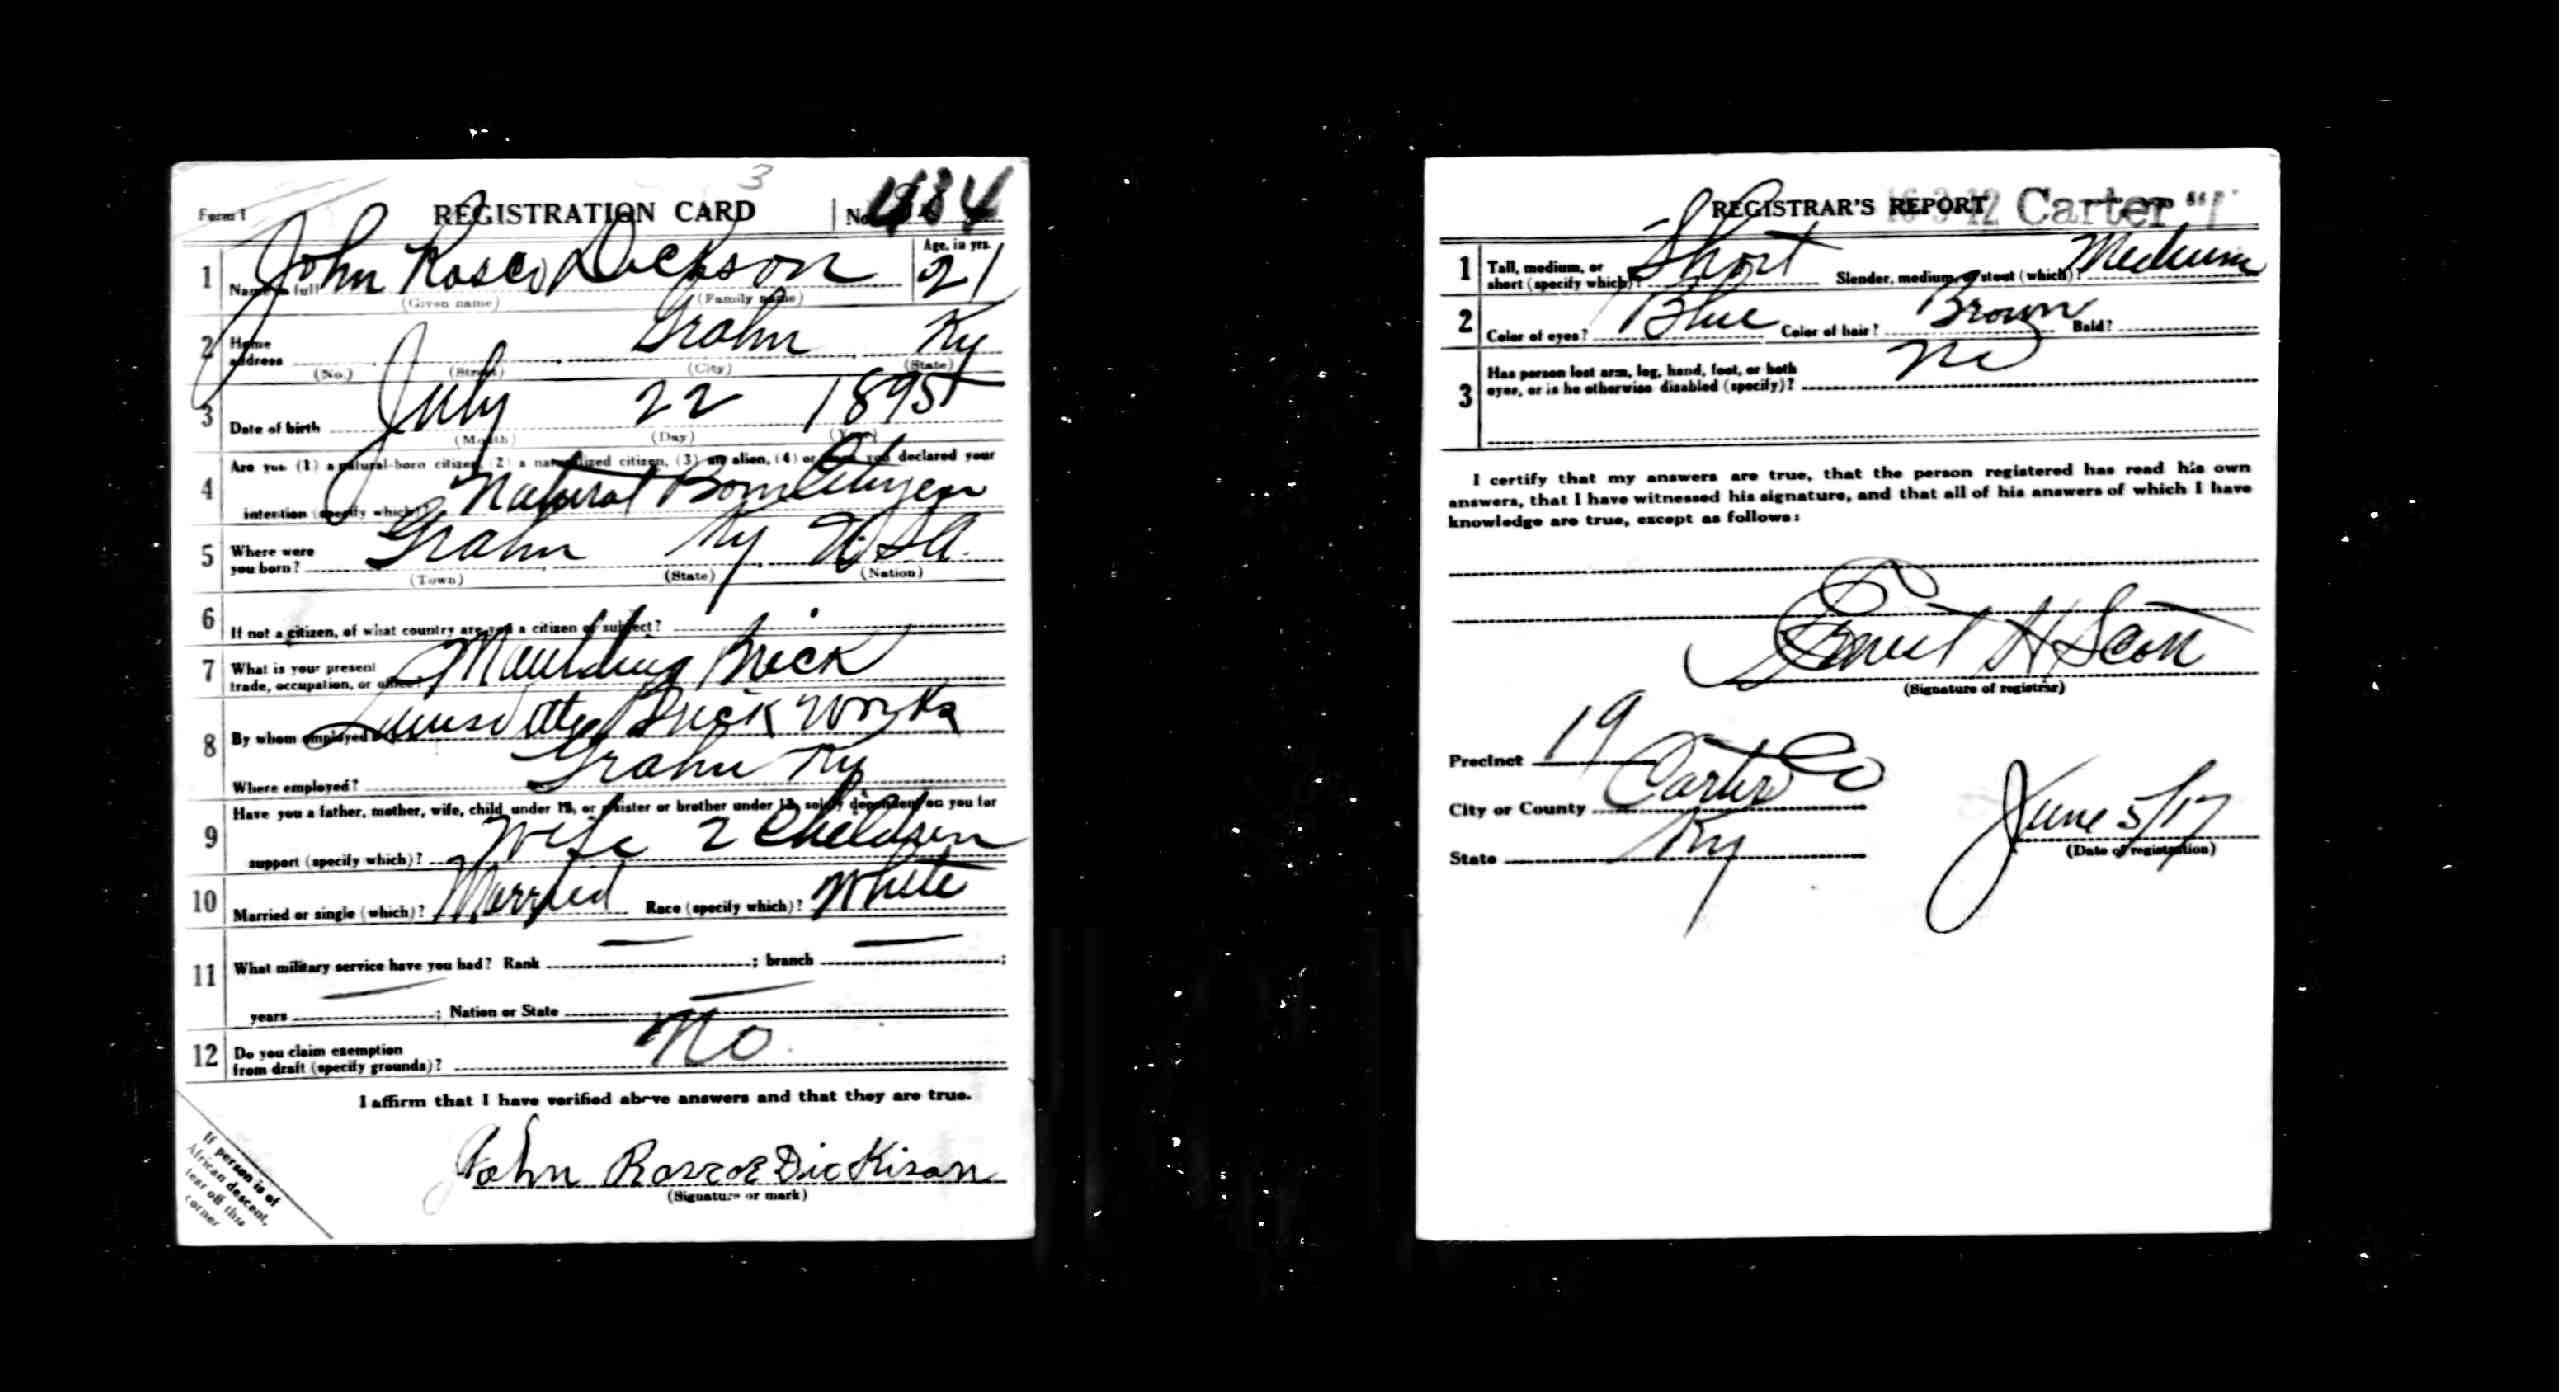 3
Form 1 REGISTRATION CARD No.
1 Name in full John Rosco Dickson Age, in yrs. 21
(Given name) (Family name)
2 Home address Grahn Ky
(No.) (Street) (City) (State)
3 Date of birth July 22 1895
(Month) (Day) (Year)
4 Are you (1) a natural-born citizen, (2) a naturalized citizen, (3) an alien, (4) or have you declared your
intention (specify which)? Natural Born Citizen
5 Where were you born? Grahn Ky U.S.A.
(Town) (State) (Nation)
6 If not a citizen, of what country are you a citizen or subject?
7 What is your present
trade, occupation, or office? Maulding Brick
8 By whom employed? Brick Works
Where employed? Grahn Ky
9 Have you a father, mother, wife, child under 12, or a sister or brother under 12, solely dependent on you for
support (specify which)? Wife 2 Children
10 Married or single (which)? Married Race (specify which)? White
11 What military service have you had? Rank — ; branch — ;
years — ; Nation or State —
12 Do you claim exemption
from draft (specify grounds)? No
I affirm that I have verified above answers and that they are true.
John Roscoe Dickison
(Signature or mark)
If person is of
African descent,
tear off this
corner
REGISTRAR'S REPORT 16-3-12 Carter
1 Tall, medium, or
short (specify which)? Short Slender, medium, or stout (which)? Medium
2 Color of eyes? Blue Color of hair? Brown Bald?
3 Has person lost arm, leg, hand, foot, or both
eyes, or is he otherwise disabled (specify)? No
I certify that my answers are true, that the person registered has read his own
answers, that I have witnessed his signature, and that all of his answers of which I have
knowledge are true, except as follows:
Ernest H Scott
(Signature of registrar)
Precinct 19
City or County Carter Co
State Ky June 5/17
(Date of registration)